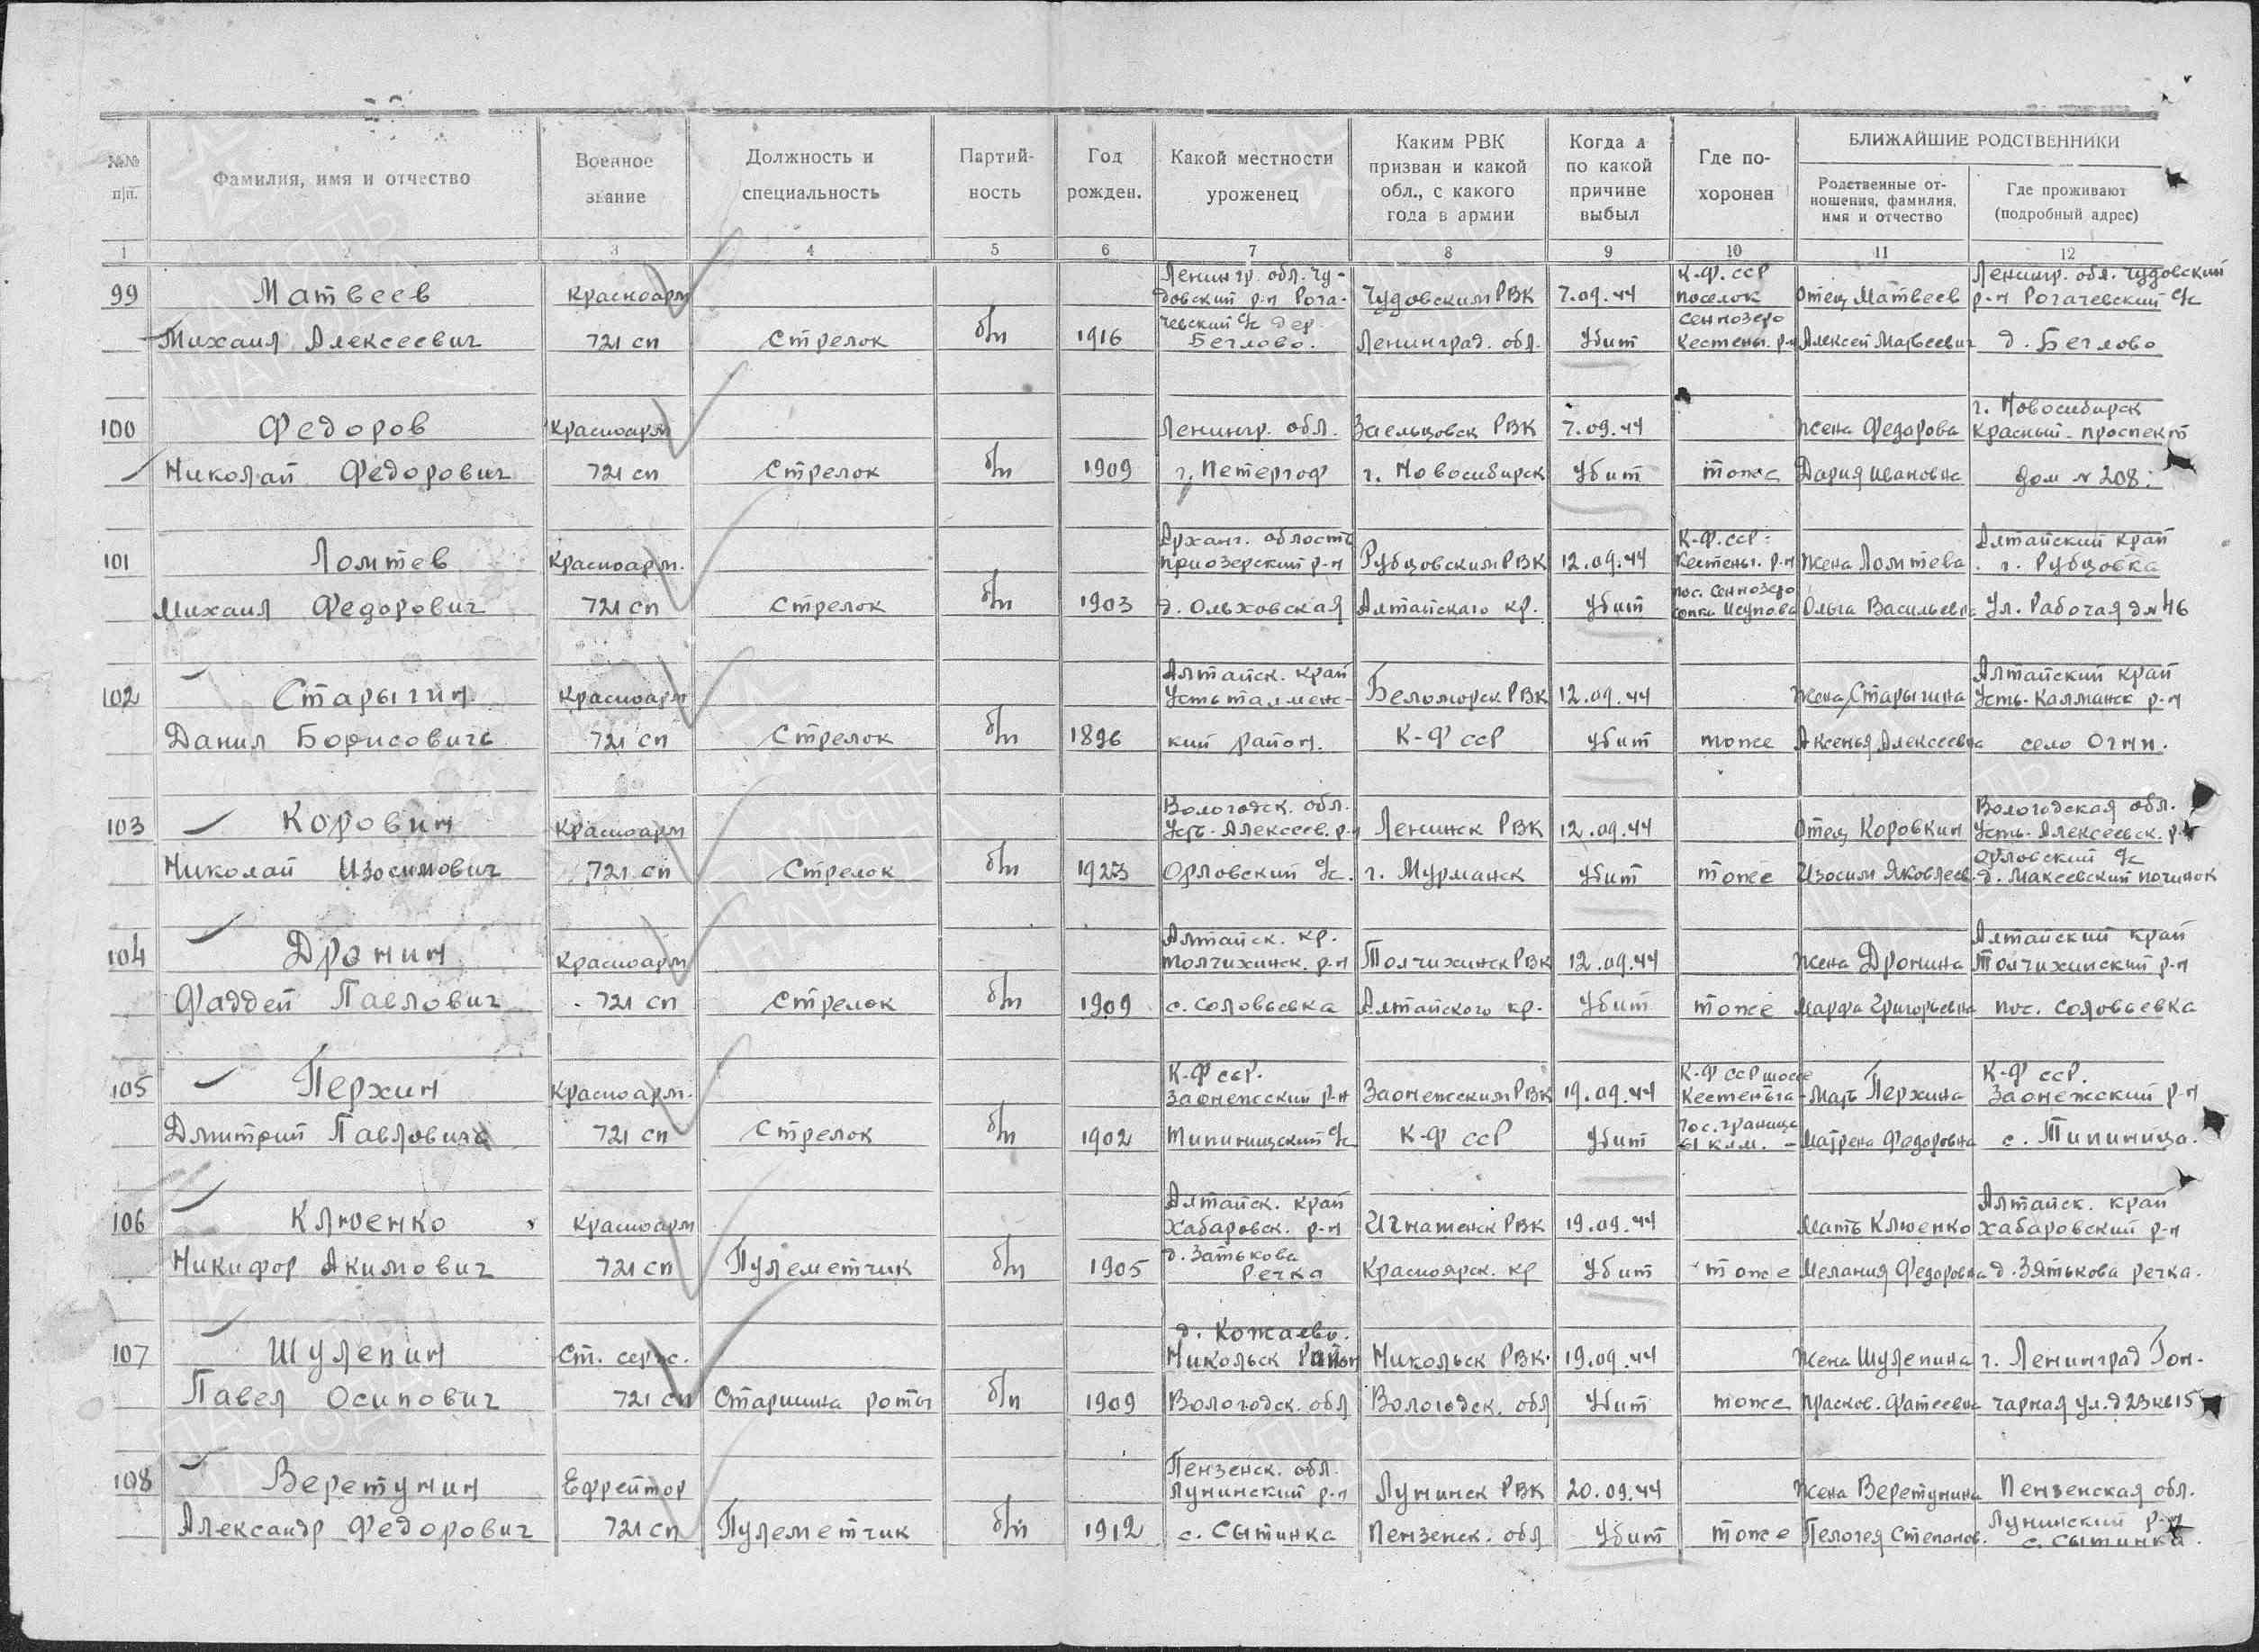 №№ п/п.
Фамилия, имя и отчество
Военное звание
Должность и специальность
Партий-ность
Год рожден.
Какой местности уроженец
Каким РВК призван и какой обл., с какого года в армии
Когда и по какой причине выбыл
Где по-хоронен
БЛИЖАЙШИЕ РОДСТВЕННИКИ
Родственные от-ношения, фамилия, имя и отчество
Где проживают (подробный адрес)
1 2 3 4 5 6 7 8 9 10 11 12
Ленингр. обл. Чу- К.Ф. ССР Ленингр. обл. Чудовский
99 Матвеев Красноарм довский р-н Рога- Чудовским РВК 7.09.44 поселок Отец Матвеев р-н Рогачевский с/с
чевский с/с дер. Сеннозеро
Михаил Алексеевич 721 сп Стрелок б/п 1916 Беглово. Ленинград. обл. Убит Кестеньг. р-н Алексей Матвеевич д. Беглово
г. Новосибирск
100 Федоров Красноарм Ленингр. обл. Заельцовск РВК 7.09.44 жена Федорова Красный-проспект
Николай Федорович 721 сп Стрелок б/п 1909 г. Петергоф г. Новосибирск Убит тоже Дария Ивановна дом № 208.
Арханг. область К.Ф. ССР. Алтайский край
101 Ломтев Красноарм. приозерский р-н Рубцовским РВК 12.09.44 Кестеньг. р-н жена Ломтева г. Рубцовка
пос. Сеннозеро
Михаил Федорович 721 сп Стрелок б/п 1903 д. Ольховская Алтайскаго кр. Убит сопка Исупова Ольга Васильевна ул. Рабочая д№46
Алтайск. край Алтайский край
102 Старыгин Красноарм Устьталменс- Беломорск РВК 12.09.44 Жена Старыгина Усть-Калманск р-н
Данил Борисович 721 сп Стрелок б/п 1896 кий район. К-Ф ССР Убит тоже Аксенья Алексеевна село Огни.
Вологодск. обл. Вологодская обл.
103 Коровин Красноарм Усть-Алексеев. р-н Ленинск РВК 12.09.44 Отец Коровкин Усть-Алексеевск. р-н
Орловский с/с
Николай Изосимович 721 сп Стрелок б/п 1923 Орловский с/с. г. Мурманск Убит тоже Изосим Яковлев. д. Максевский починок
Алтайск. кр. Алтайский край
104 Дронин Красноарм Толчихинск. р-н Толчихинск РВК 12.09.44 жена Дронина Толчихинский р-н
Фаддей Павлович 721 сп Стрелок б/п 1909 с. Соловьевка Алтайского кр. Убит тоже Марфа Григорьевна пос. Соловьевка
К-Ф ССР. К-Ф ССР шоссе К-Ф ССР.
105 Перхин Красноарм. Заонежский р-н Заонежским РВК 19.09.44 Кестеньга- Мать Перхина Заонежский р-н
Гос. граница
Дмитрий Павлович 721 сп Стрелок б/п 1902 Типиницский с/с К-Ф ССР Убит 61 клм. Матрена Федоровна с. Типиница.
Алтайск. край Алтайск. край
106 Клюенко Красноарм Хабаровск. р-н Игнатенск РВК 19.09.44 Мать Клюенко Хабаровский р-н
д. Затькова
Никифор Акимович 721 сп Пулеметчик б/п 1905 Речка Красноярск. кр Убит тоже Мелания Федоровна д. Зятькова речка.
д. Кожаево.
107 Шулепин Ст. серж. Никольск Район Никольск РВК. 19.09.44 Жена Шулепина г. Ленинград Гон-
Павел Осипович 721 сп Старшина роты б/п 1909 Вологодск. обл Вологодск. обл Убит тоже Прасков. Фатеевна чарная ул. д 23 кв 15
Пензенск. обл.
108 Веретунин Ефрейтор Лунинский р-н Лунинск РВК 20.09.44 Жена Веретунина Пензенская обл.
Лунинский р-н
Александр Федорович 721 сп Пулеметчик б/п 1912 с. Сытинка Пензенск. обл Убит тоже Пелогея Степанов. с. Сытинка.
ПАМЯТЬ НАРОДА